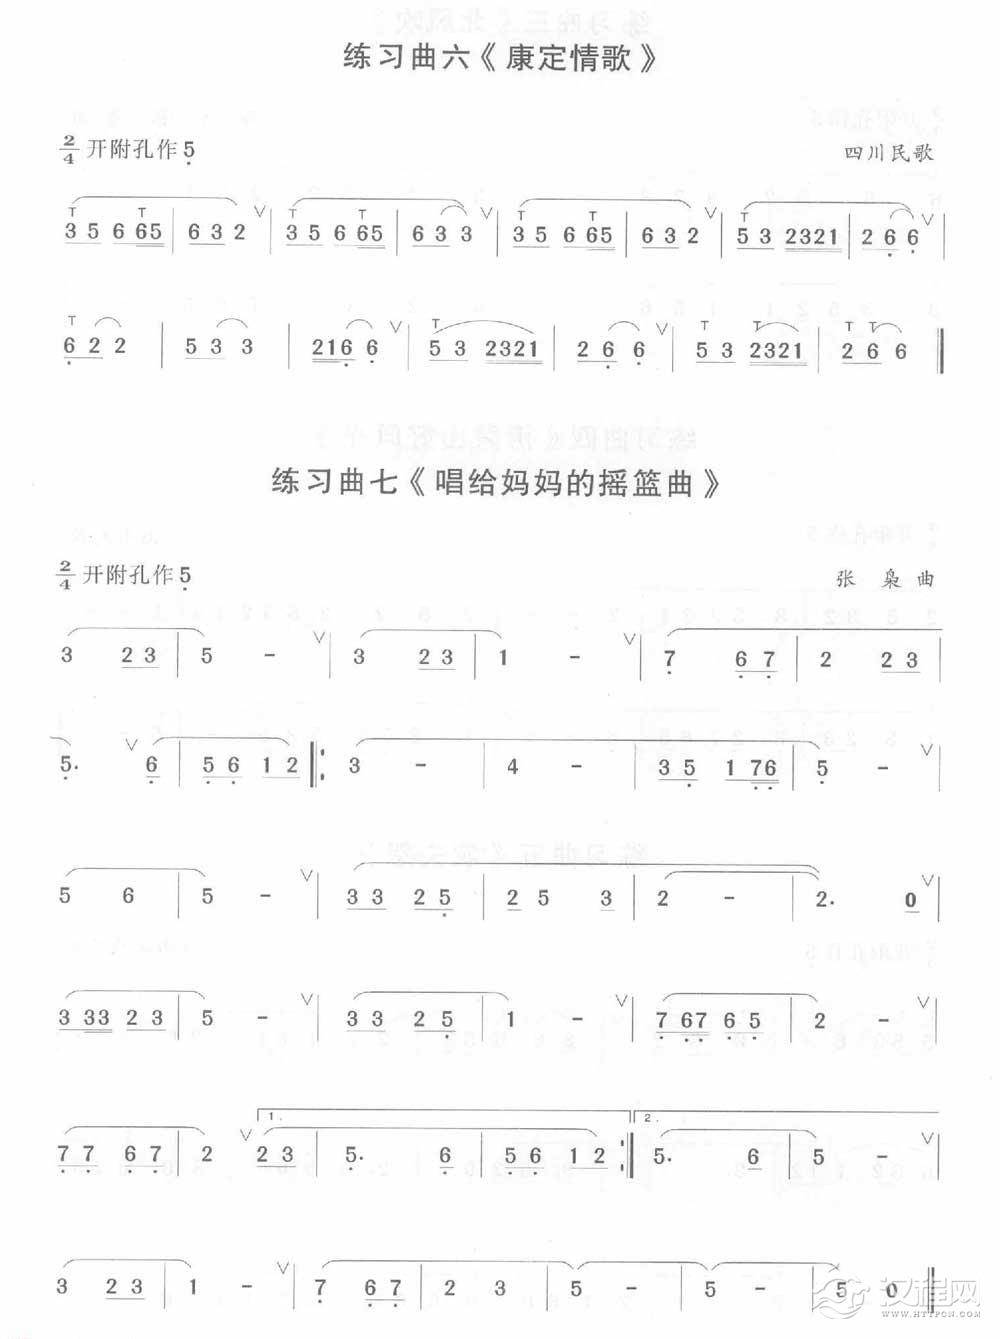 练习曲六《康定情歌》
2/4 开附孔作 5̣
四川民歌
T T V T T V T T V T V
3 5 6 65 | 6 3 2 | 3 5 6 65 | 6 3 3 | 3 5 6 65 | 6 3 2 | 5 3 2321 | 2 6̣ 6̣ |
T V T V T T T
6̣ 2 2 | 5 3 3 | 216̣ 6̣ | 5 3 2321 | 2 6̣ 6̣ | 5 3 2321 | 2 6̣ 6 ‖
练习曲七《唱给妈妈的摇篮曲》
2/4 开附孔作 5̣
张 枭 曲
3 2 3 | 5 - V | 3 2 3 | 1 - V | 7̣ 6̣ 7̣ | 2 2 3 |
5̣. V 6̣ | 5̣ 6̣ 1 2 ‖: 3 - | 4 - | 3 5̣ 1 7̣6̣ | 5̣ - V |
5 6 | 5 - V | 3 3 2 5̣ | 2 5 3 | 2 - | 2. 0 V |
3 33 2 3 | 5 - V | 3 3 2 5̣ | 1 - V | 7̣ 6̣7̣ 6̣ 5̣ | 2 - V |
7̣ 7̣ 6̣ 7̣ | 2 V 1. 2 3 | 5̣. 6̣ | 5̣ 6̣ 1 2 :‖ 2. 5̣. 6̣ | 5 - V |
3 2 3 | 1 - V | 7̣ 6̣ 7̣ | 2 3 | 5 - | 5 - | 5 0 ‖
汉程网
WWW.HTTPCN.COM